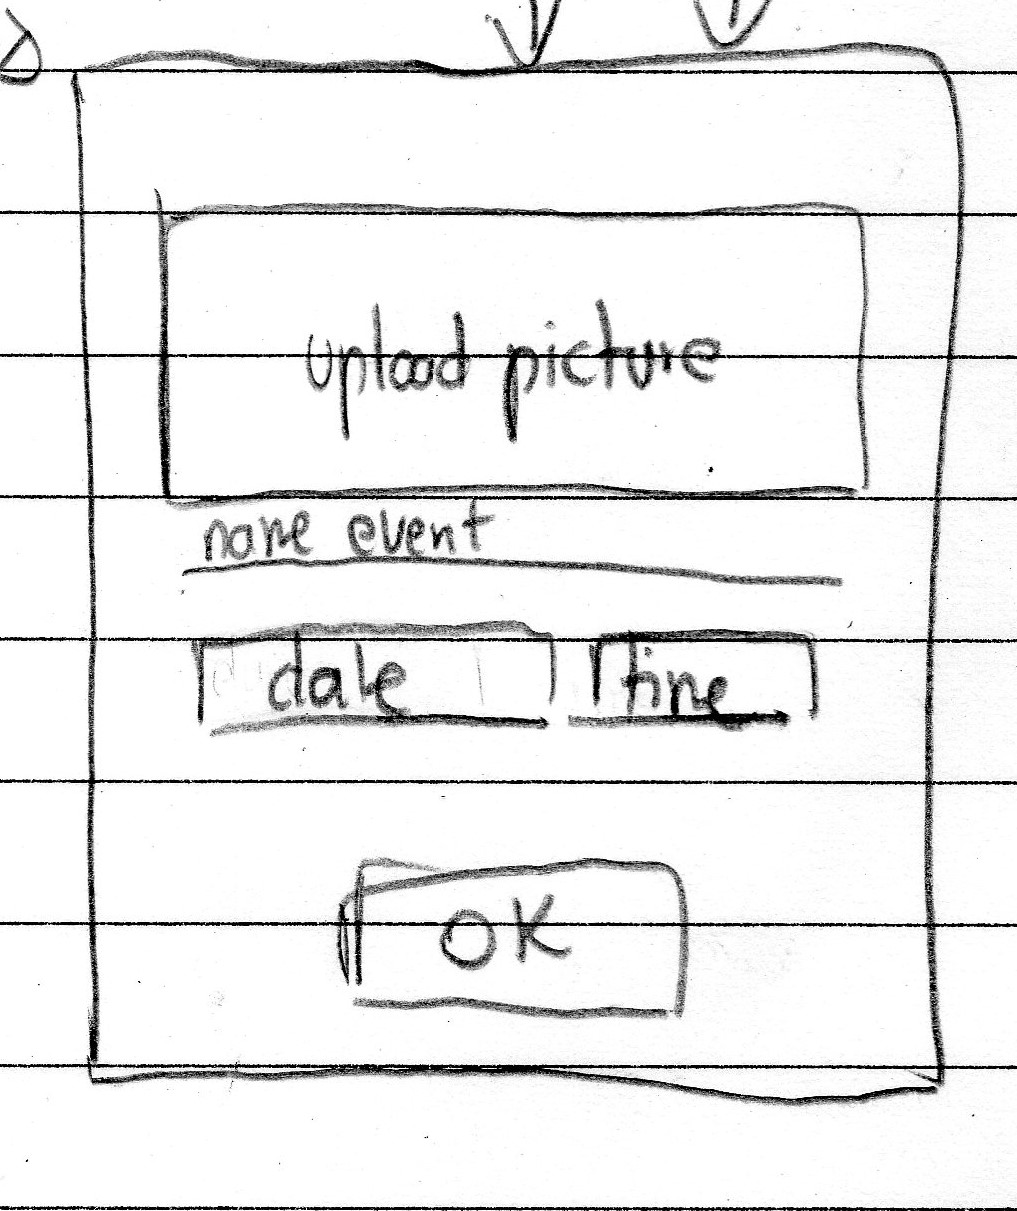 upload picture
name event
date time
OK